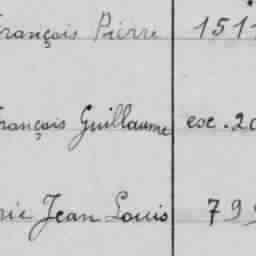 François Pierre 151
François Guillaume esc. 20
rie Jean Louis 799